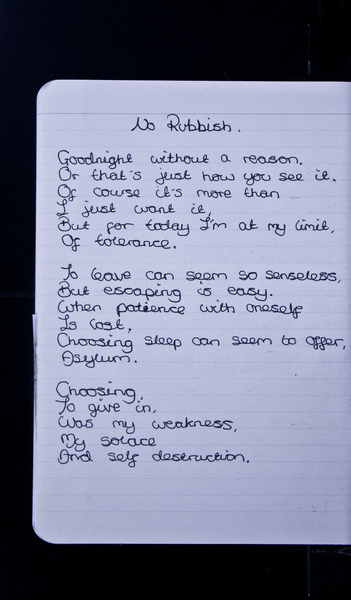 No Rubbish.
Goodnight without a reason.
Or that's just how you see it.
Of course it's more than
I just want it,
But for today I'm at my limit,
Of tolerance.
To leave can seem so senseless,
But escaping is easy.
When patience with oneself
Is lost,
Choosing sleep can seem to offer,
Asylum.
Choosing,
To give in,
Was my weakness,
My solace
And self destruction.